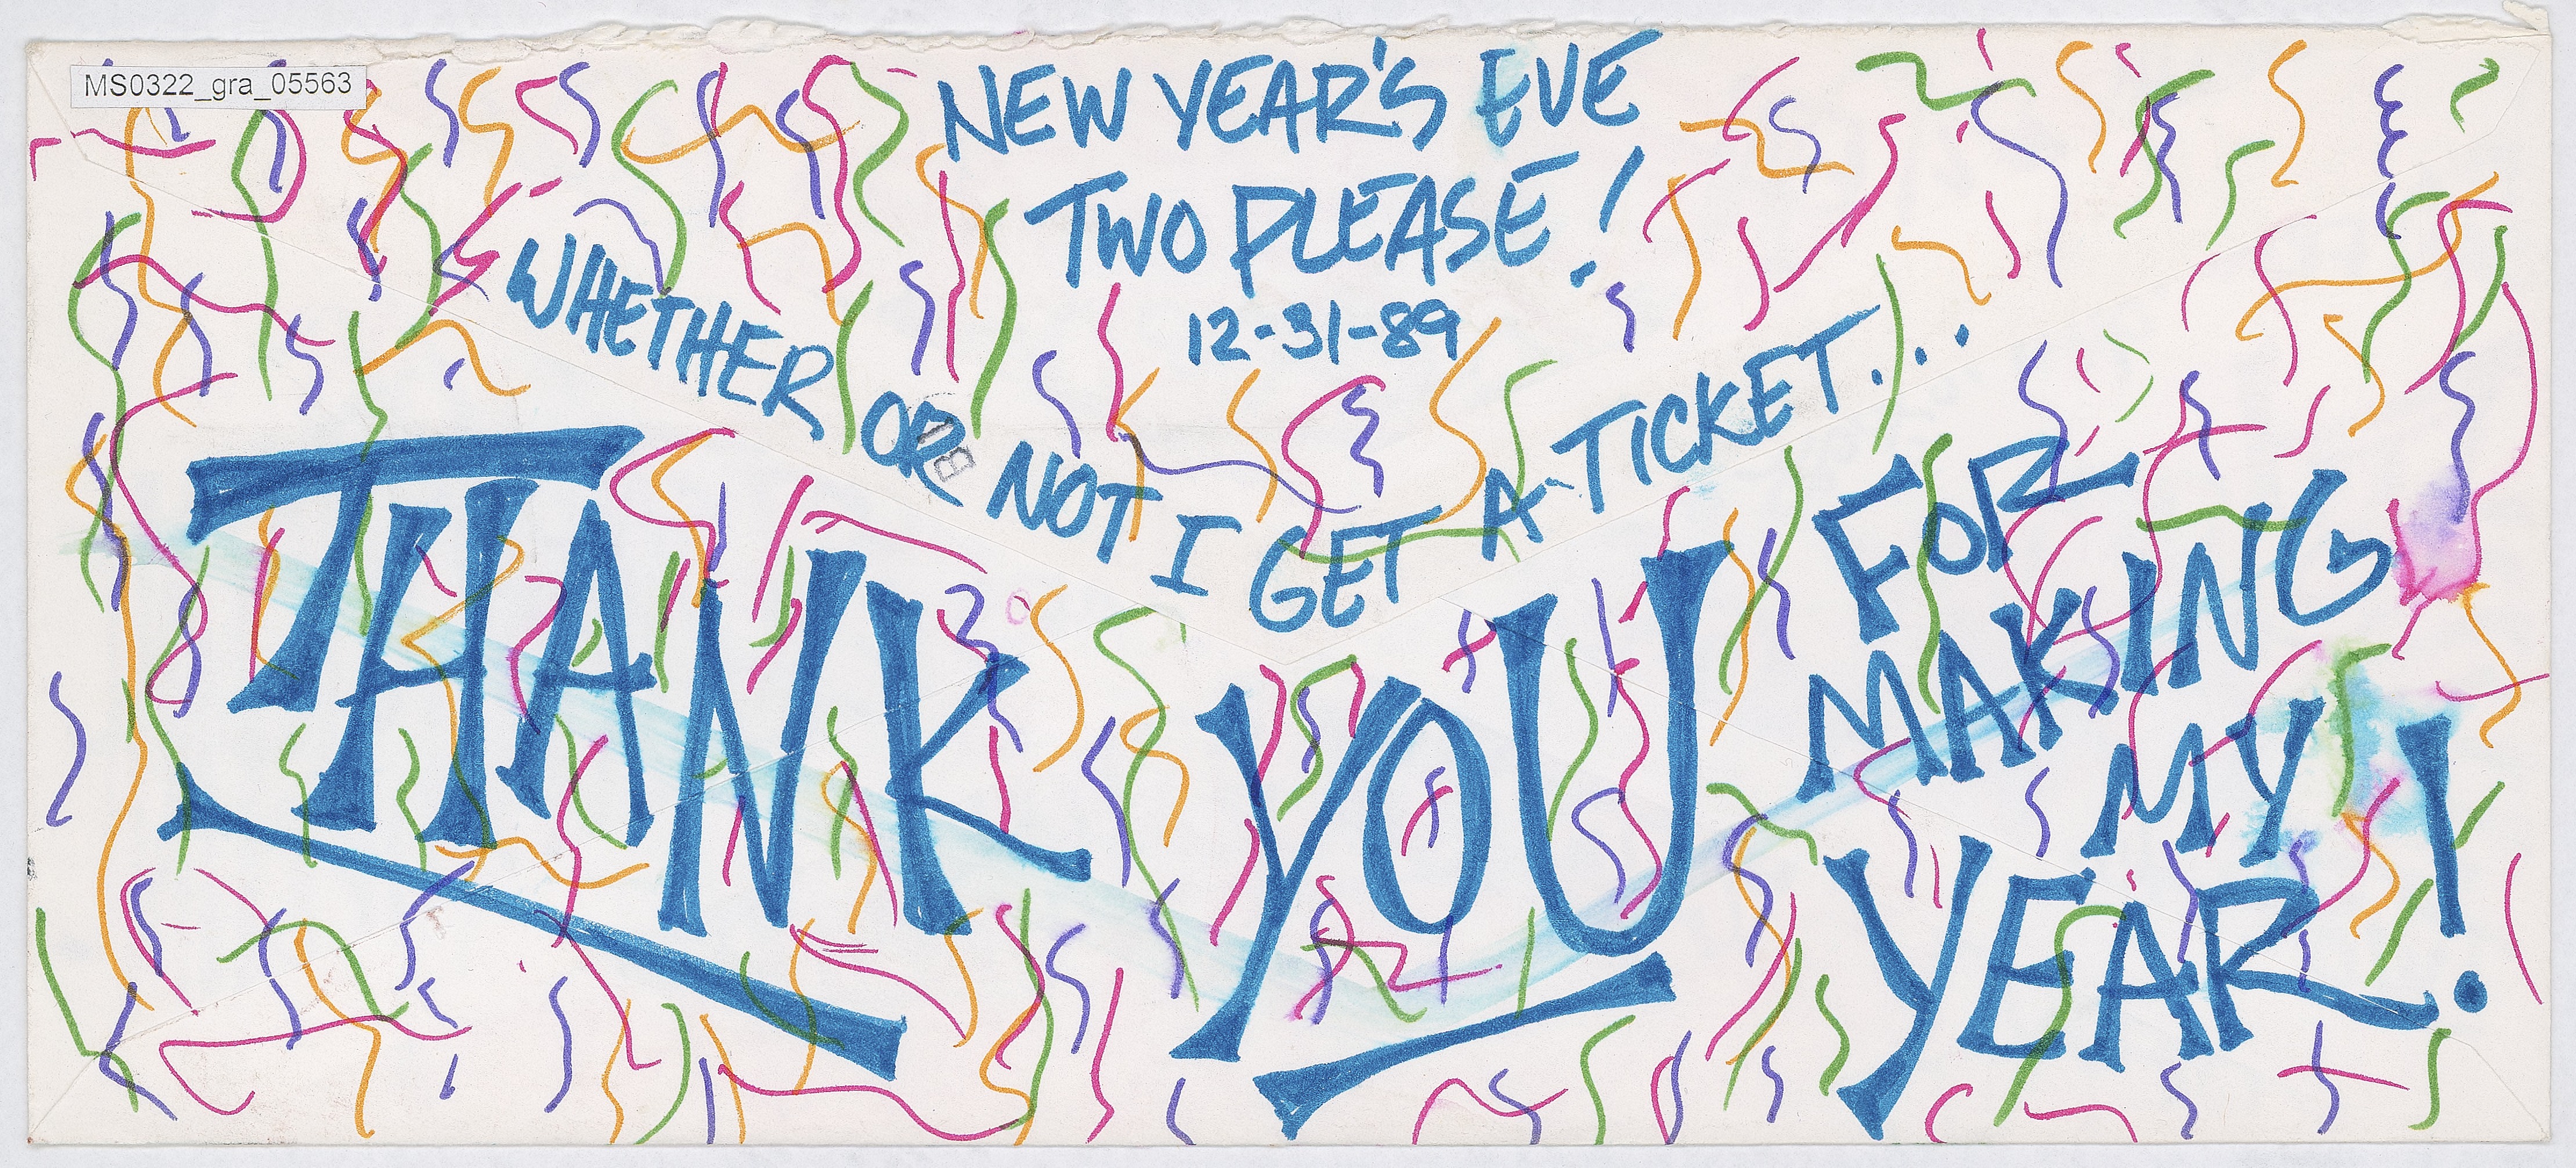 MS0322_gra_05563
NEW YEAR'S EVE
TWO PLEASE!
12-31-89
WHETHER OR NOT I GET A TICKET...
THANK YOU
FOR
MAKING
MY
YEAR!